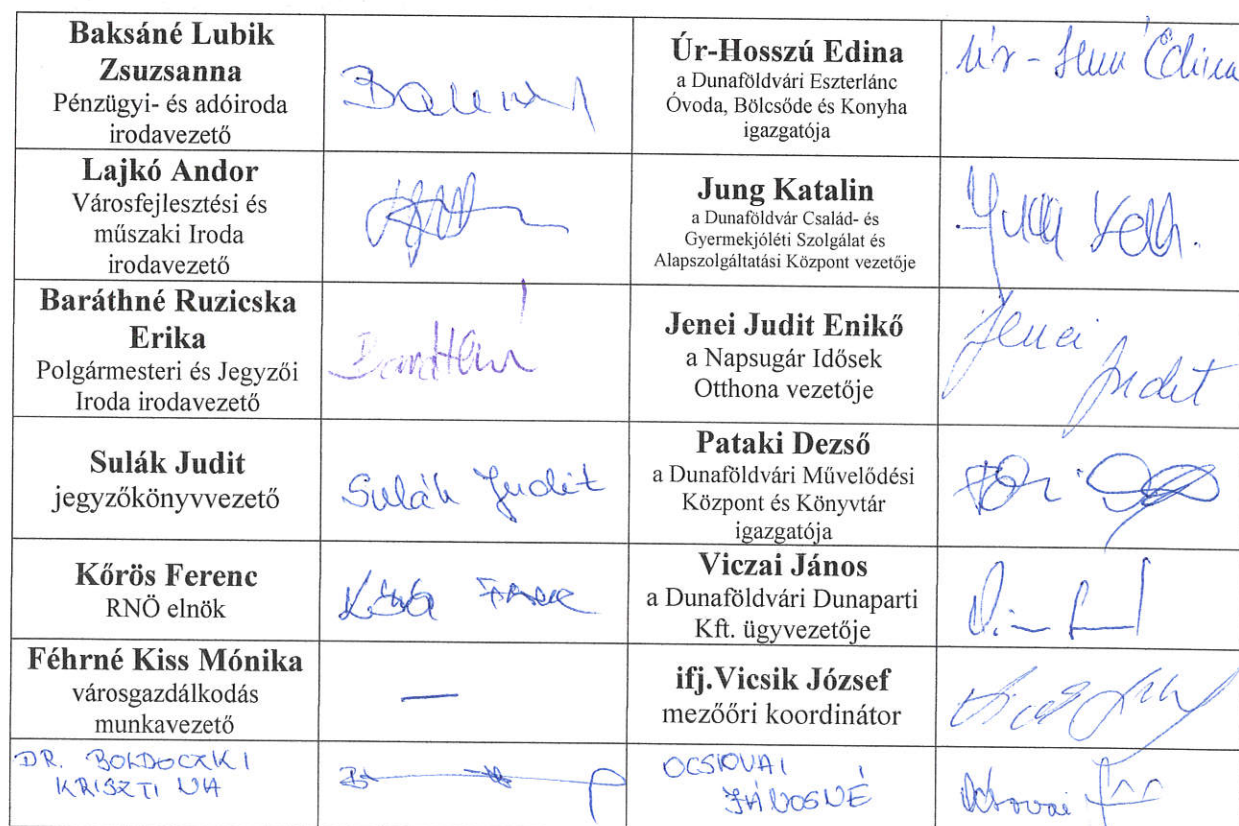 Baksáné Lubik
Zsuzsanna
Pénzügyi- és adóiroda
irodavezető
Úr-Hosszú Edina
a Dunaföldvári Eszterlánc
Óvoda, Bölcsőde és Konyha
igazgatója
Úr - Edina
Lajkó Andor
Városfejlesztési és
műszaki Iroda
irodavezető
Jung Katalin
a Dunaföldvár Család- és
Gyermekjóléti Szolgálat és
Alapszolgáltatási Központ vezetője
Baráthné Ruzicska
Erika
Polgármesteri és Jegyzői
Iroda irodavezető
Jenei Judit Enikő
a Napsugár Idősek
Otthona vezetője
Jenei
Judit
Sulák Judit
jegyzőkönyvvezető
Sulák Judit
Pataki Dezső
a Dunaföldvári Művelődési
Központ és Könyvtár
igazgatója
Kőrös Ferenc
RNÖ elnök
Viczai János
a Dunaföldvári Dunaparti
Kft. ügyvezetője
Féhrné Kiss Mónika
városgazdálkodás
munkavezető
—
ifj.Vicsik József
mezőőri koordinátor
DR. BOLDOCZKI
KRISZTINA
OCSOVAI
JÁNOSNÉ